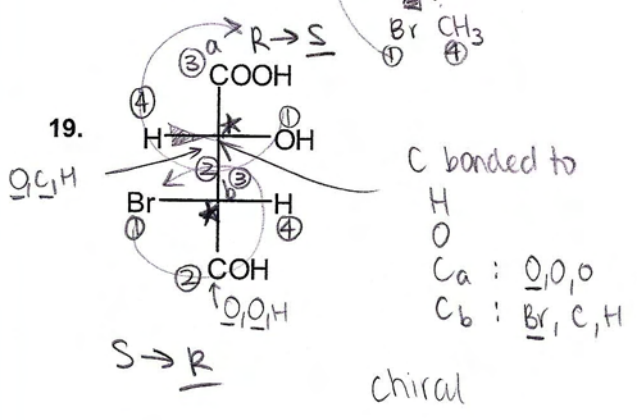 Br CH3
① ④
a R → S
③ COOH
④
19.
①
H * OH
O,C,H
② ③
b
Br * H
① ④
② COH
↑ O,O,H
S → R
C bonded to
H
O
Ca : O,O,O
Cb : Br, C, H
chiral